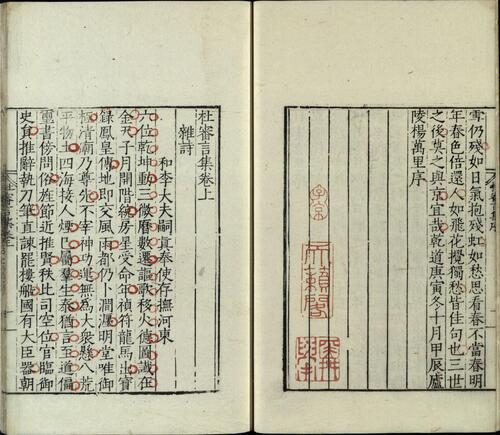 雪仍殘如日氣抱殘虹如愁思看春不當春明
年春色倍還人如飛花攪獨愁皆佳句也三世
之後莫之與京宜哉乾道庚寅冬十月甲辰廬
陵楊萬里序
天籟閣
杜審言集卷上
雜詩
和李大夫嗣真奉使存撫河東
六位乾坤動三微曆數遷謳歌移火德圖讖在
金天子月開階統房星受命年禎符龍馬出寶
籙鳳皇傳地即交風雨都仍卜澗瀍明堂唯御
極清廟乃尊先不宰神功運無為大象懸八荒
平物土四海接人煙已屬羣生泰猶言至道偏
璽書傍問俗旌節近推賢秩比司空位官臨御
史員推辭執刀筆直諫罷樓船國有大臣器朝